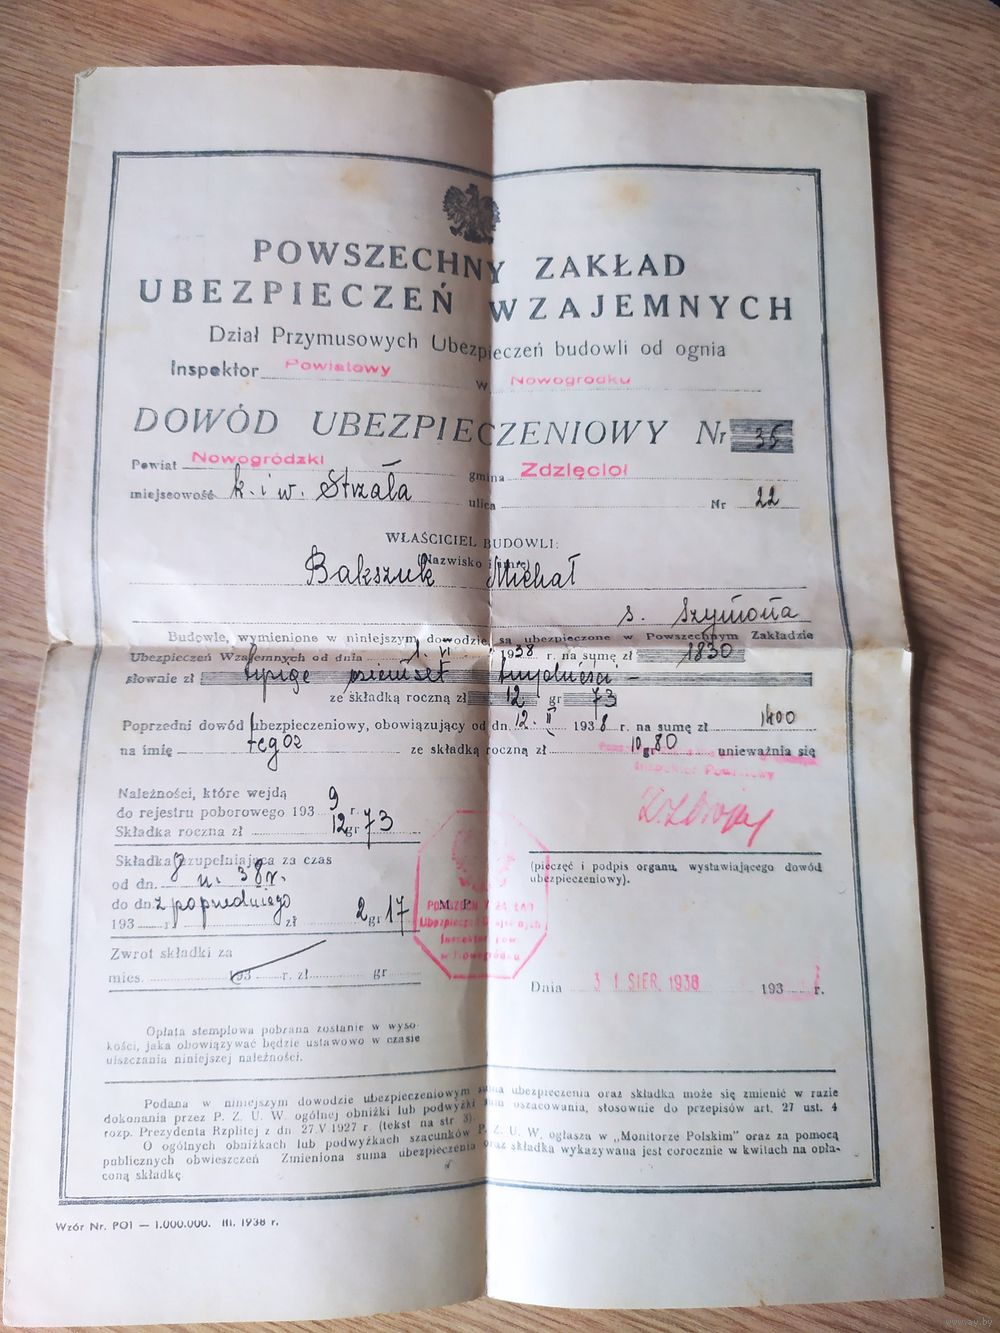 POWSZECHNY ZAKŁAD
UBEZPIECZEŃ WZAJEMNYCH
Dział Przymusowych Ubezpieczeń budowli od ognia
Inspektor Powiatowy w Nowogródku
DOWÓD UBEZPIECZENIOWY Nr 35
Powiat Nowogródzki gmina Zdzięcioł
miejscowość k. i w. Strzała ulica Nr 22
WŁAŚCICIEL BUDOWLI:
(Nazwisko i imię)
Bakszuk Michał
s. Szymona
Budowle, wymienione w niniejszym dowodzie, są ubezpieczone w Powszechnym Zakładzie
Ubezpieczeń Wzajemnych od dnia 1. VI 1938 r. na sumę zł 1830
słownie zł tysiąc osiemset trzydzieści -
ze składką roczną zł 12 gr 73
Poprzedni dowód ubezpieczeniowy, obowiązujący od dn. 12. II 1938 r. na sumę zł 1400
na imię tegoż ze składką roczną zł 10 gr 80 unieważnia się
Inspektor Powiatowy
Należności, które wejdą
do rejestru poborowego 193 9 r.
Składka roczna zł 12 gr 73
(pieczęć i podpis organu, wystawiającego dowód
ubezpieczeniowy).
Składka uzupełniająca za czas
od dn. 38 r.
do dn. z poprzedniego
193 r. zł 2 gr 17
M. P.
POWSZECHNY ZAKŁAD
Ubezpieczeń Wzajemnych
Inspektor pow.
w Nowogródku
Zwrot składki za
mies. 193 r. zł gr
Dnia 31 SIER. 1938 193 r.
Opłata stemplowa pobrana zostanie w wyso-
kości, jaka obowiązywać będzie ustawowo w czasie
uiszczania niniejszej należności.
Podana w niniejszym dowodzie ubezpieczeniowym suma ubezpieczenia oraz składka może się zmienić w razie
dokonania przez P. Z. U. W. ogólnej obniżki lub podwyżki sum oszacowania, stosownie do przepisów art. 27 ust. 4
rozp. Prezydenta Rzplitej z dn 27.V 1927 r. (tekst na str 3).
O ogólnych obniżkach lub podwyżkach szacunków P. Z. U. W. ogłasza w „Monitorze Polskim" oraz za pomocą
publicznych obwieszczeń Zmieniona suma ubezpieczenia oraz składka wykazywana jest corocznie w kwitach na opła-
coną składkę
Wzór Nr. PO1 — 1.000.000. III. 1938 r.
www.ay.by